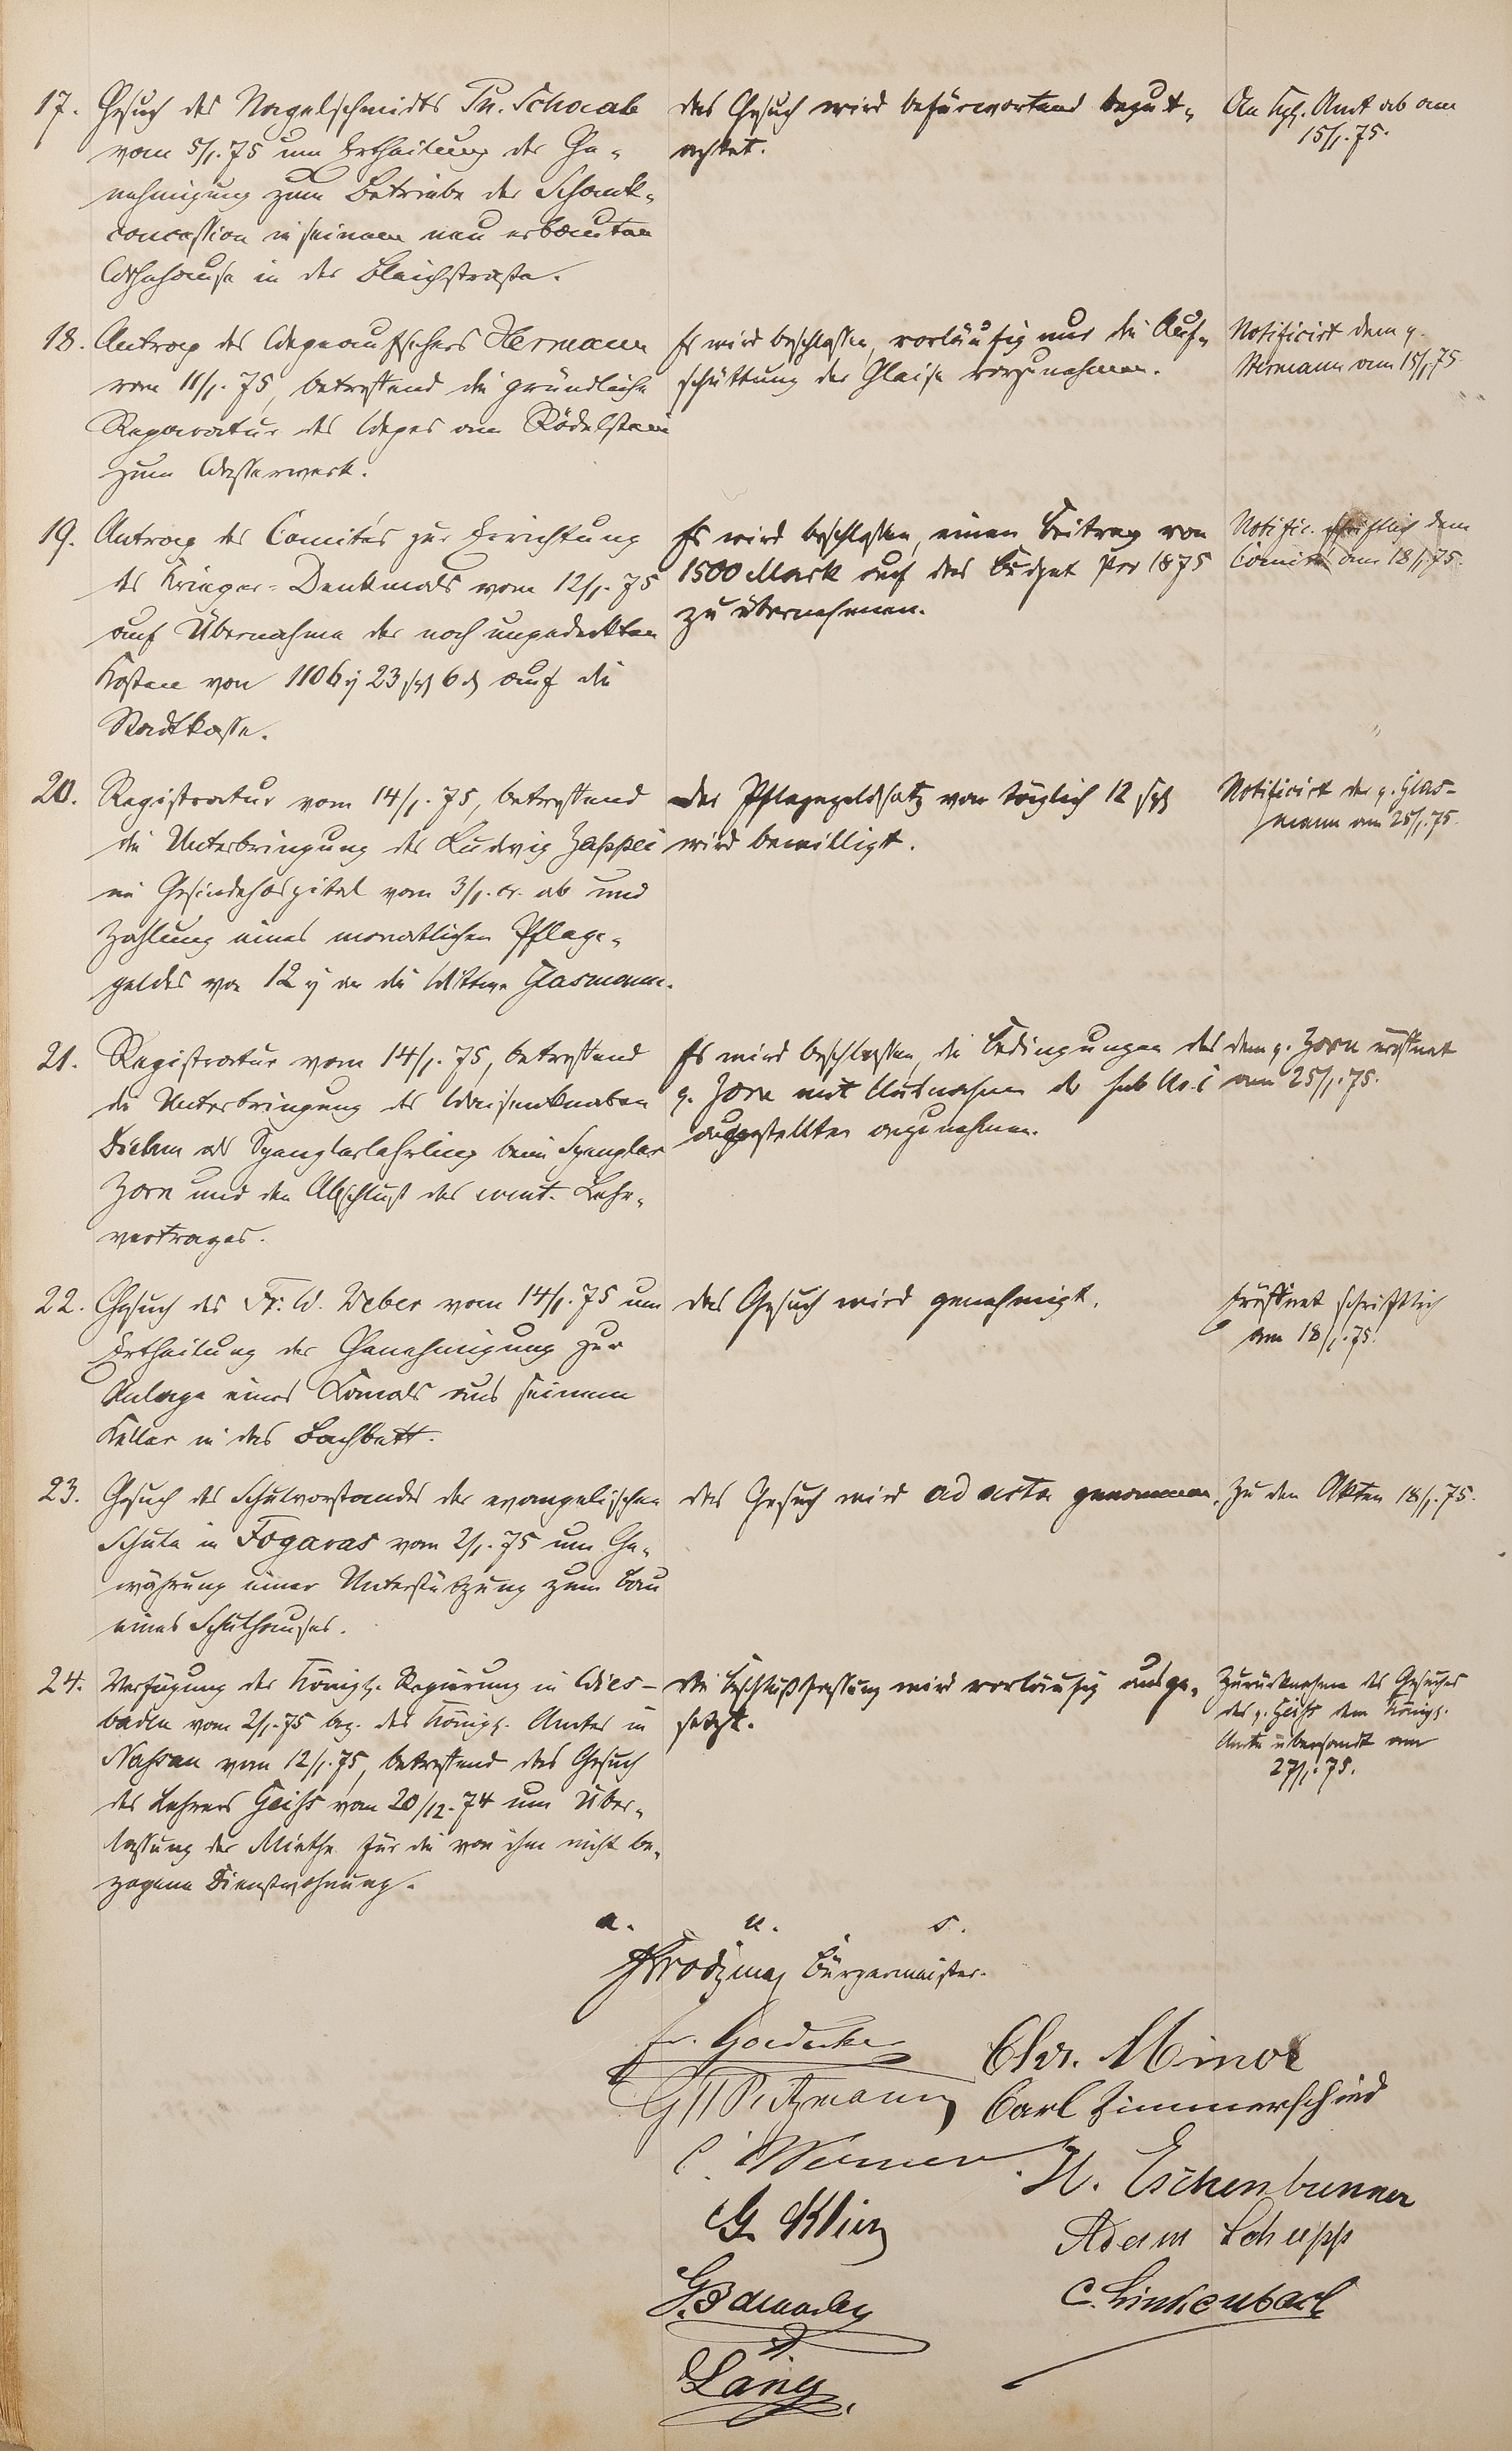 17. Gesuch des Nagelschmidts Ph. Schwab
vom 5/1. 75 um Ertheilung der Ge-
nehmigung zum Betriebe der Schank-
concession in seinem neu erbauten
Wohnhause in der Bleichstraße.
das Gesuch wird befürwortend begut-
achtet.
An Kgl. Amt ab am
15/1. 75.
18. Antrag des Wegeaufsehers Hermann
vom 11/1. 75, betreffend die gründliche
Reparatur des Weges am Rödelstein
zum Wasserwerk.
Es wird beschlossen, vorläufig nur die Auf-
schüttung der Gleise vorzunehmen.
Notificirt dem p.
Hermann am 15/1 75.
19. Antrag des Comités zur Errichtung
des Krieger-Denkmals vom 12/1. 75
auf Übernahme der noch ungedeckten
Kosten von 1106 23 sgr 6 d auf die
Stadtkasse.
Es wird beschlossen, einen Beitrag von
1500 Mark auf das Budget pro 1875
zu übernehmen.
Notific. schriftlich dem
Comité am 18/1. 75.
20. Registratur vom 14/1. 75, betreffend
die Unterbringung des Ludwig Zappei
im Gesindehospital vom 3/1. cr. ab und
Zahlung eines monatlichen Pflege-
geldes von 12 an die Wittwe Glasmann.
Der Pflegegeldsatz von täglich 12 sgr
wird bewilligt.
Notificirt der p. Glas-
mann am 25/1. 75.
21. Registratur vom 14/1. 75, betreffend
die Unterbringung des Waisenknaben
Diehm als Spenglerlehrling beim Spengler
Zorn und den Abschluß des event. Lehr-
vertrages.
Es wird beschlossen, die Bedingungen des
p. Zorn mit Ausnahme der sub No. i
aufgestellten anzunehmen.
dem p. Zorn eröffnet
am 25/1. 75.
22. Gesuch des Fr. W. Weber vom 14/1. 75 um
Ertheilung der Genehmigung zur
Anlage eines Kanals aus seinem
Keller in das Bachbett.
das Gesuch wird genehmigt.
Eröffnet schriftlich
am 18/1. 75.
23. Gesuch des Schulvorstandes der evangelischen
Schule in Fogaras vom 2/1. 75 um Ge-
währung einer Unterstützung zum Bau
eines Schulhauses.
das Gesuch wird ad acta genommen.
Zu den Akten 18/1. 75.
24. Verfügung der Königl. Regierung in Wies-
baden vom 2/1. 75 bez. des Königl. Amtes in
Nassau vom 12/1. 75, betreffend das Gesuch
des Lehrers Geiss vom 20/12. 74 um Über-
lassung der Miethe für die von ihm nicht be-
zogene Dienstwohnung.
die Beschlußfassung wird vorläufig ausge-
setzt.
Zurücknahme des Gesuches
des p. Geiss dem Königl.
Amte übersandt am
27/1. 75.
a. u. s.
Bürgermeister.
Fr. Goedecke
Chr. Minor
Carl Zimmerschied
C. Werner
H. Eschenbrenner
G. Klein
Adam Schupp
C. Linkenbach
Lang